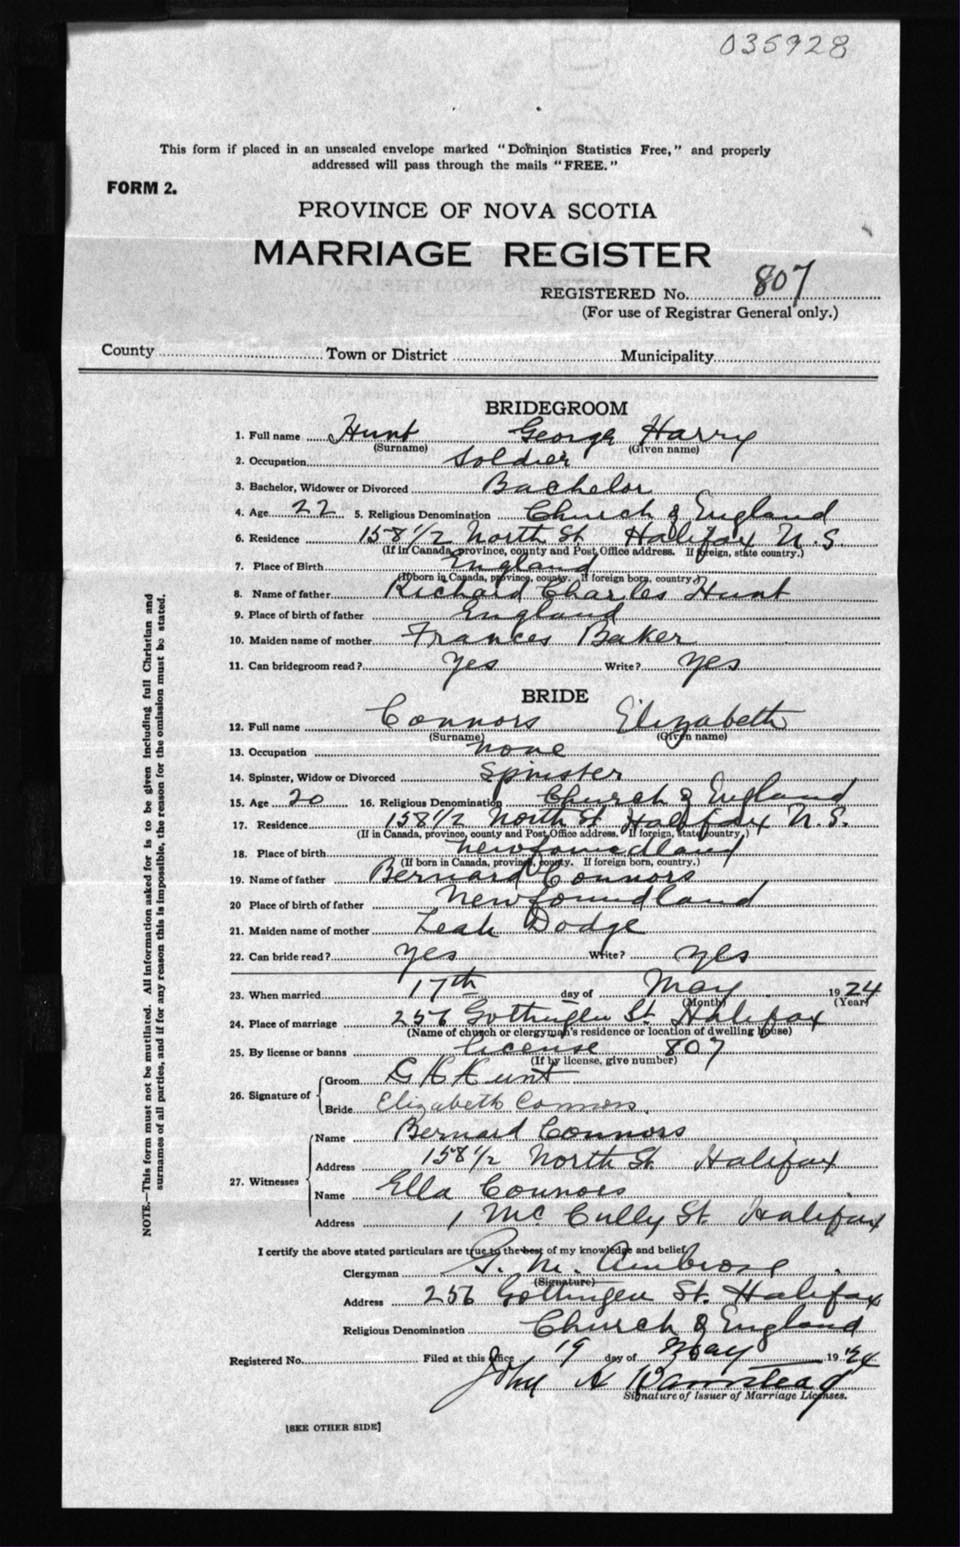 035928
This form if placed in an unsealed envelope marked "Dominion Statistics Free," and properly
addressed will pass through the mails "FREE."
FORM 2.
PROVINCE OF NOVA SCOTIA
MARRIAGE REGISTER
REGISTERED No. 807
(For use of Registrar General only.)
County Town or District Municipality
BRIDEGROOM
1. Full name Hunt George Harry
(Surname) (Given name)
2. Occupation Soldier
3. Bachelor, Widower or Divorced Bachelor
4. Age 22 5. Religious Denomination Church of England
6. Residence 158 1/2 North St Halifax N.S.
(If in Canada, province, county and Post Office address. If foreign, state country.)
7. Place of Birth England
(If born in Canada, province, county. If foreign born, country.)
8. Name of father Richard Charles Hunt
9. Place of birth of father England
10. Maiden name of mother Frances Baker
11. Can bridegroom read? Yes Write? Yes
BRIDE
12. Full name Connors Elizabeth
(Surname) (Given name)
13. Occupation none
14. Spinster, Widow or Divorced Spinster
15. Age 20 16. Religious Denomination Church of England
17. Residence 158 1/2 North St Halifax N.S.
(If in Canada, province, county and Post Office address. If foreign, state country.)
18. Place of birth Newfoundland
(If born in Canada, province, county. If foreign born, country.)
19. Name of father Bernard Connors
20 Place of birth of father Newfoundland
21. Maiden name of mother Leah Dodge
22. Can bride read? Yes Write? Yes
23. When married 17th day of May 1924
(Month) (Year)
24. Place of marriage 256 Gottingen St Halifax
(Name of church or clergyman's residence or location of dwelling house)
25. By license or banns license 807
(If by license, give number)
26. Signature of Groom G H Hunt
Bride Elizabeth Connors
27. Witnesses Name Bernard Connors
Address 158 1/2 North St Halifax
Name Ella Connors
Address 1 McCully St. Halifax
I certify the above stated particulars are true to the best of my knowledge and belief.
Clergyman G. M. Ambrose
(Signature)
Address 256 Gottingen St. Halifax
Religious Denomination Church of England
Registered No. Filed at this office 19 day of May 1924
John A
Signature of Issuer of Marriage Licenses.
[SEE OTHER SIDE]
NOTE.—This form must not be mutilated. All information asked for is to be given including full Christian and
surnames of all parties, and if for any reason this is impossible, the reason for the omission must be stated.